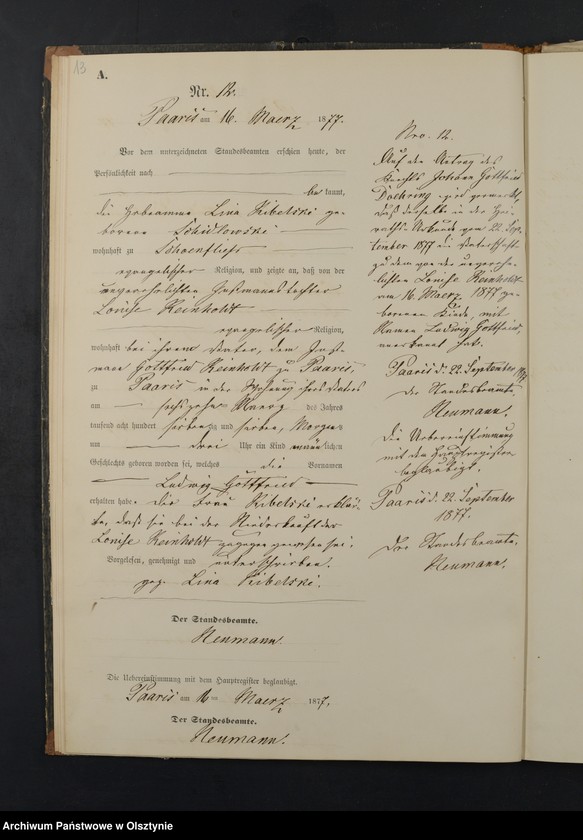 13
A.
Nr. 12.
Paaris am 16. Maerz 1877.
Vor dem unterzeichneten Standesbeamten erschien heute, der
Persönlichkeit nach
bekannt,
die Hebeamme Lina Kibelski ge-
borene Schidlowski
wohnhaft zu Schoenfliess
evangelischer Religion, und zeigte an, daß von der
unverehelichten Instmannstochter
Louise Reinholdt
evangelischer Religion,
wohnhaft bei ihrem Vater, dem Inst-
mann Gottfried Reinholdt zu Paaris,
zu Paaris in der Wohnung ihres Vaters
am sechszehn Maerz des Jahres
tausend acht hundert siebenzig und sieben, Morgens
um drei Uhr ein Kind männlichen
Geschlechts geboren worden sei, welches die Vornamen
Ludwig Gottfried
erhalten habe. Die Frau Kibelski erklär-
te, daß sie bei der Niederkunft der
Louise Reinholdt zugegen gewesen sei.
Vorgelesen, genehmigt und unterschrieben.
gez. Lina Kibelski.
Der Standesbeamte.
Neumann.
Die Uebereinstimmung mit dem Hauptregister beglaubigt.
Paaris am 16 Maerz 1877.
Der Standesbeamte.
Neumann.
Nro. 12.
Auf den Antrag des
Knechts Johann Gottfried
Doehring wird vermerkt,
daß derselbe in der Hei-
raths-Urkunde vom 22. Sep-
tember 1877 die Vaterschaft
zu dem von der unverehe-
lichten Louise Reinholdt
am 16. Maerz 1877 ge-
borenen Kinde, mit
Namen Ludwig Gottfried,
anerkannt hat.
Paaris d. 22. September 1877
Der Standesbeamte.
Neumann.
Die Uebereinstimmung
mit dem Hauptregister
beglaubigt.
Paaris d. 22. September
1877.
Der Standesbeamte.
Neumann.
Archiwum Państwowe w Olsztynie